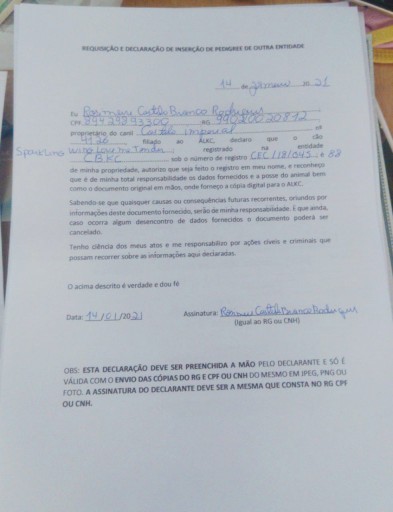 REQUISIÇÃO E DECLARAÇÃO DE INSERÇÃO DE PEDIGREE DE OUTRA ENTIDADE
14 de Janeiro 20 21
Eu Rosineri Castelo Branco Rodrigues
CPF RG 99020020812
proprietário do canil Castelo Imperial nº
4126 filiado ao AUKC, declaro que o cão
Sparkling Wing Love me Tender registrado na entidade
CBKC sob o número de registro e
de minha propriedade, autorizo que seja feito o registro em meu nome, e reconheço
que é de minha total responsabilidade os dados fornecidos e a posse do animal bem
como o documento original em mãos, onde forneço a cópia digital para o AUKC.
Sabendo-se que quaisquer causas ou consequências futuras recorrentes, oriundos por
informações deste documento fornecido, serão de minha responsabilidade. E que ainda,
caso ocorra algum desencontro de dados fornecidos o documento poderá ser
cancelado.
Tenho ciência dos meus atos e me responsabilizo por ações cíveis e criminais que
possam recorrer sobre as informações aqui declaradas.
O acima descrito é verdade e dou fé
Data: 14/01/2021 Assinatura: Rosineri Castelo Branco Rodrigues
(Igual ao RG ou CNH)
OBS: ESTA DECLARAÇÃO DEVE SER PREENCHIDA A MÃO PELO DECLARANTE E SÓ É
VÁLIDA COM O ENVIO DAS CÓPIAS DO RG E CPF OU CNH DO MESMO EM JPEG, PNG OU
FOTO. A ASSINATURA DO DECLARANTE DEVE SER A MESMA QUE CONSTA NO RG CPF
OU CNH.